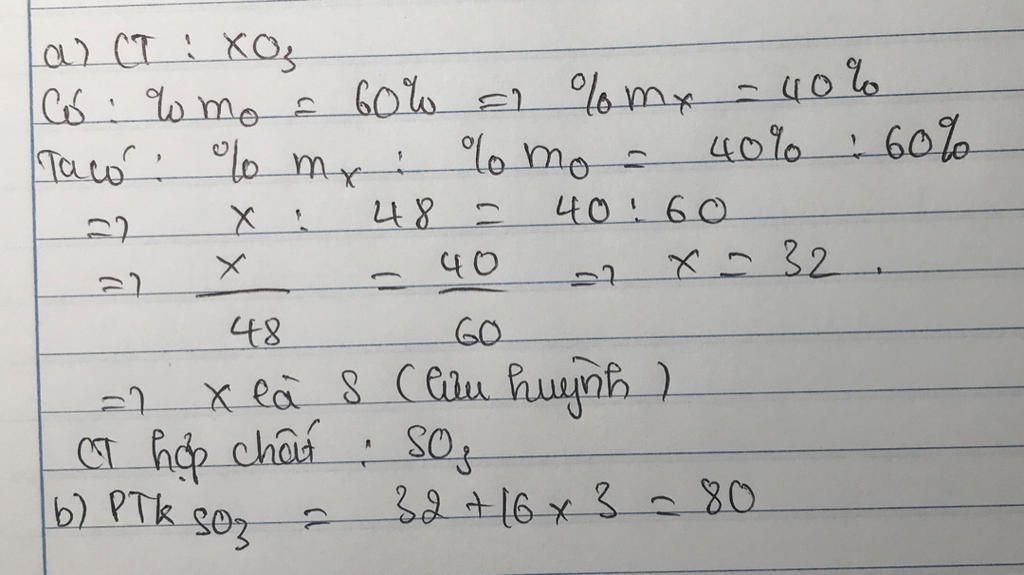 a) CT : XO₃
Có : % mO = 60% => % mX = 40%
Ta có : % mX : % mO = 40% : 60%
=> X : 48 = 40 : 60
=> X/48 = 40/60 => X = 32 .
=> X là S (lưu huỳnh)
CT hợp chất : SO₃
b) PTK SO₃ = 32 + 16 x 3 = 80